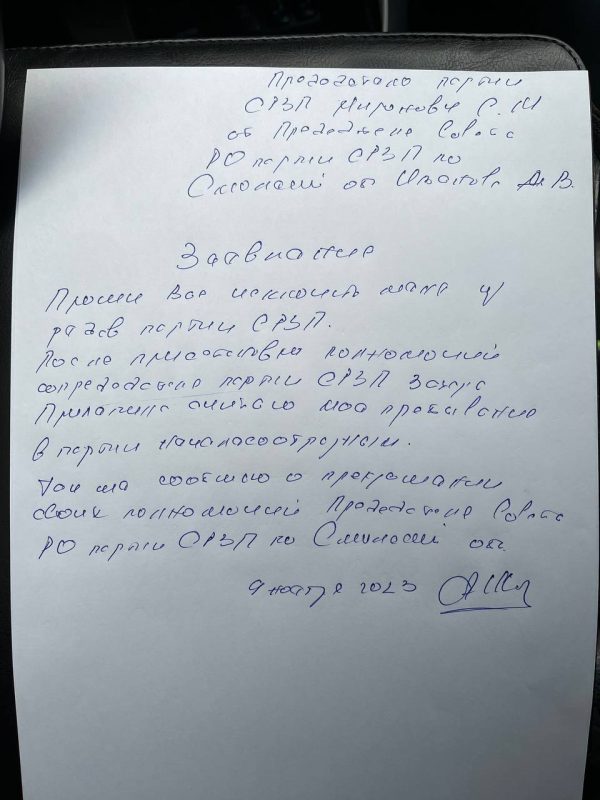 Председателю партии
СРЗП Миронову С. М
от Председателя Совета
РО партии СРЗП по
Смоленской обл В.
Заявление
Прошу Вас исключить меня из
рядов партии СРЗП.
После приостановки полномочий
сопредседателя партии СРЗП Захара
Прилепина считаю мое пребывание
в партии нецелесообразным.
Также сообщаю о прекращении
своих полномочий Председателя Совета
РО партии СРЗП по Смоленской обл.
9 ноября 2023